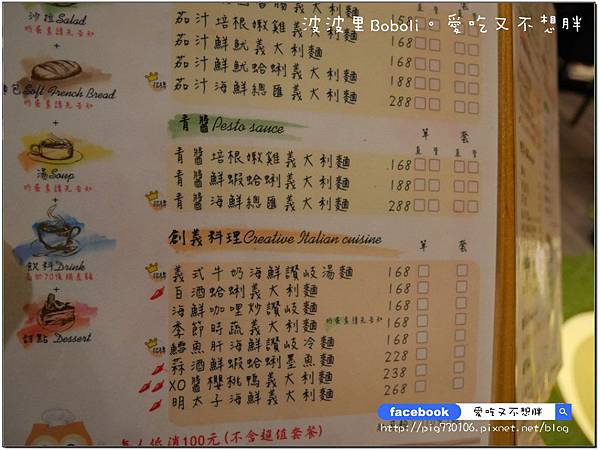 波波里Boboli。愛吃又不想胖
沙拉Salad
吃蛋素請先告知
+
Soft French Bread
吃蛋素請先告知
+
湯Soup
吃蛋素請先告知
+
飲料Drink
+
甜點 Dessert
茄汁培根嫩雞義大利麵 168
茄汁鮮魷義大利麵 168
茄汁鮮魷蛤蜊義大利麵 188
茄汁海鮮總匯義大利麵 288
青醬Pesto sauce 單 套
青醬培根嫩雞義大利麵 168
青醬鮮蝦蛤蜊義大利麵 188
青醬海鮮總匯義大利麵 288
創義料理Creative Italian cuisine 單 套
義式牛奶海鮮讚岐湯麵 168
白酒蛤蜊義大利麵 168
海鮮咖哩炒讚岐麵 168
季節時蔬義大利麵 吃蛋素請先告知 168
鱈魚肝海鮮讚岐冷麵 168
蒜酒鮮蝦蛤蜊墨魚麵 228
XO醬櫻桃鴨義大利麵 238
明太子海鮮義大利麵 268
每人低消100元(不含超值套餐)
facebook 愛吃又不想胖
http://pig730106.pixnet.net/blog